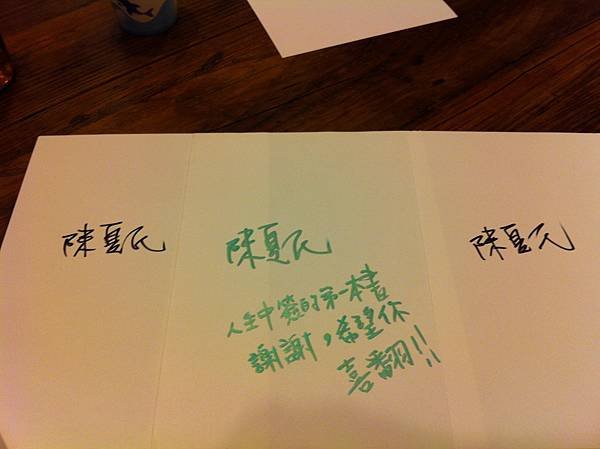 陳夏民
陳夏民
陳夏民
人生中簽的第一本書
謝謝，希望你
喜翻!!